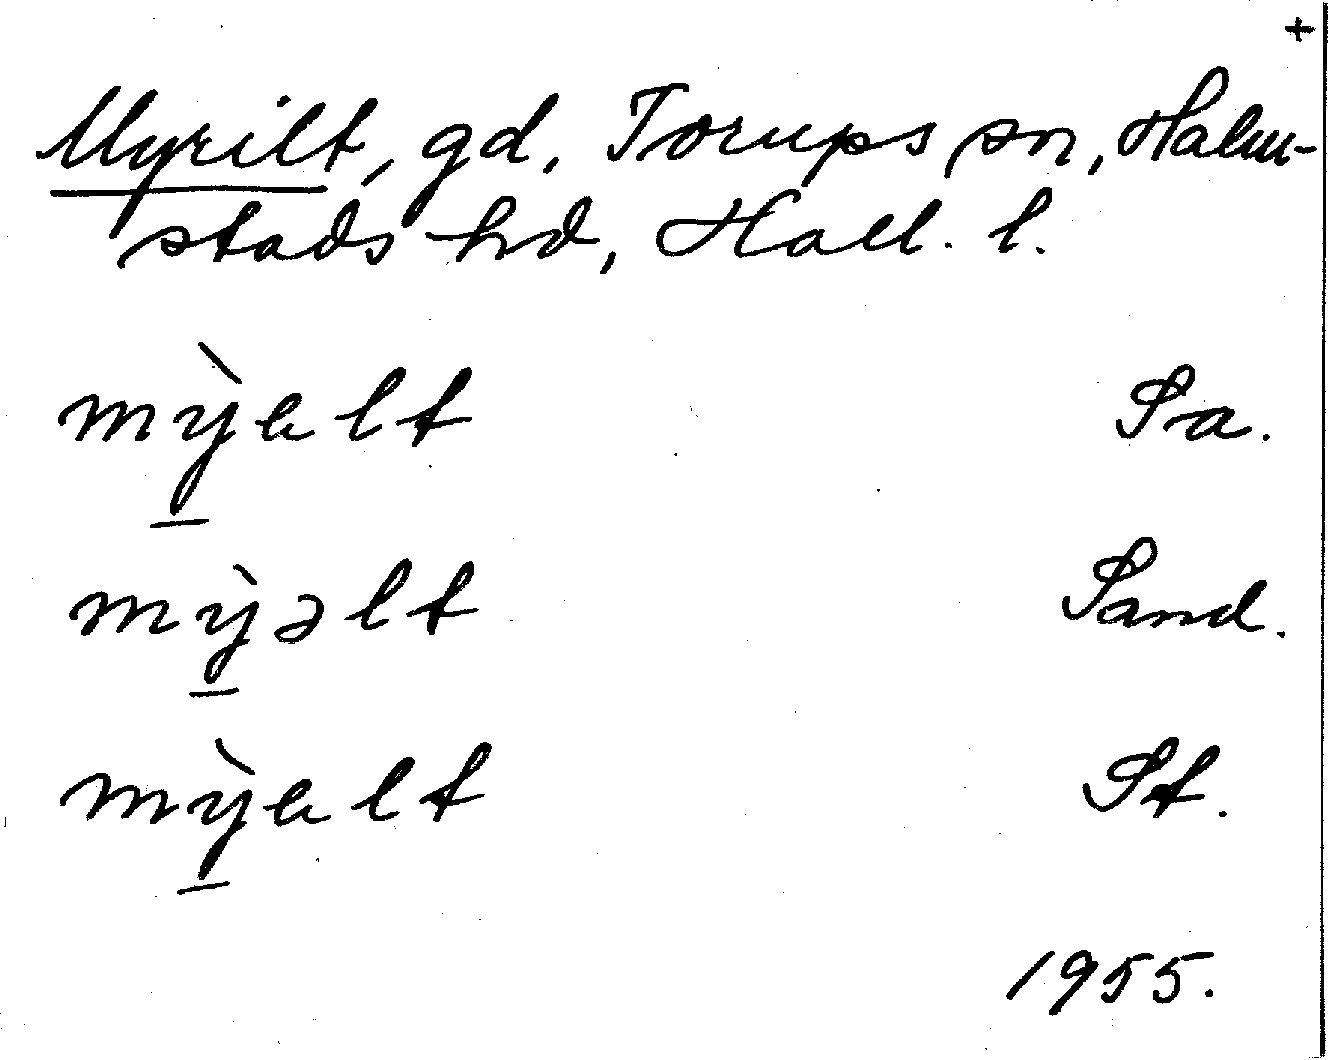 +
Myrilt, gd, Torups sn, Halm-
stads hd, Hall. l.
mỳ̱ɐlt Sa.
mỳ̱əlt Sand.
mỳ̱ɐlt St.
1955.